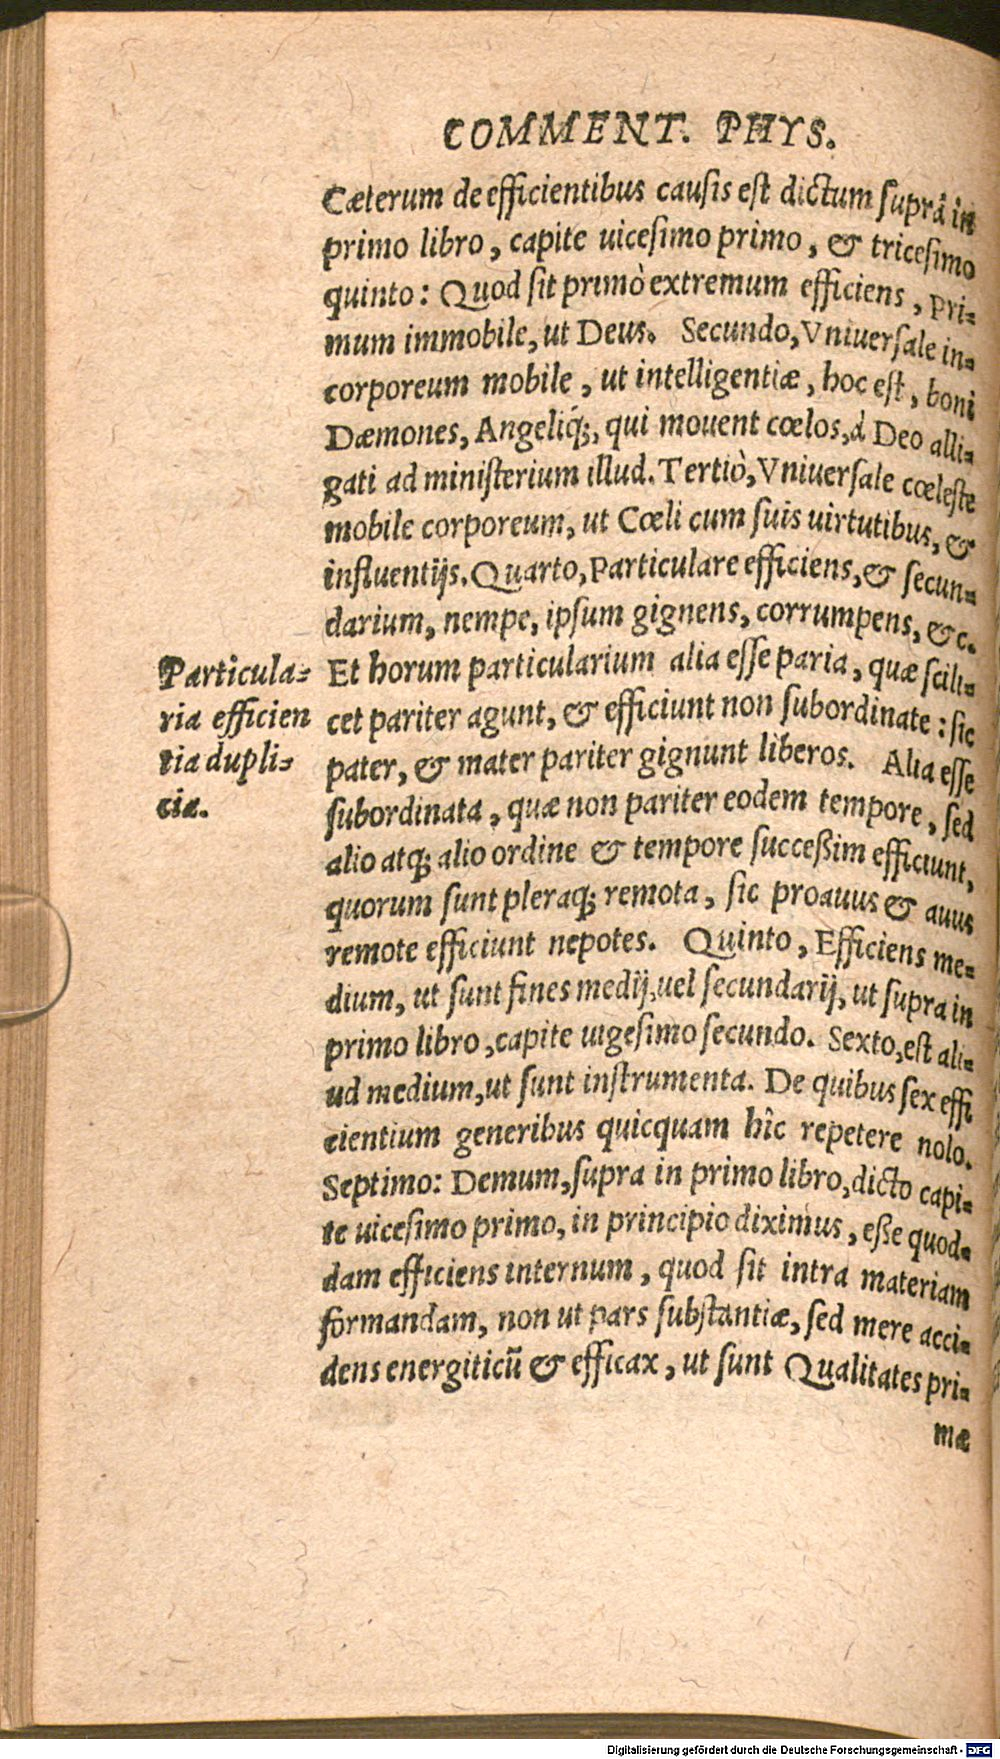 COMMENT. PHYS.
Cæterum de efficientibus causis est dictum suprà in
primo libro, capite uicesimo primo, & tricesimo
quinto: Quod sit primò extremum efficiens, pri-
mum immobile, ut Deus. Secundo, Vniuersale in-
corporeum mobile, ut intelligentiæ, hoc est, boni
Dæmones, Angeliq́;, qui mouent cœlos, à Deo alli-
gati ad ministerium illud. Tertiò, Vniuersale cœleste
mobile corporeum, ut Cœli cum suis uirtutibus, &
influentijs. Quarto, Particulare efficiens, & secun-
darium, nempe, ipsum gignens, corrumpens, &c.
Particula-
ria efficien
tia dupli-
cia.
Et horum particularium alia esse paria, quæ scili-
cet pariter agunt, & efficiunt non subordinate: sic
pater, & mater pariter gignunt liberos. Alia esse
subordinata, quæ non pariter eodem tempore, sed
alio atq; alio ordine & tempore succeßim efficiunt,
quorum sunt pleraq; remota, sic proauus & auus
remote efficiunt nepotes. Quinto, Efficiens me-
dium, ut sunt fines medij, uel secundarij, ut supra in
primo libro, capite uigesimo secundo. Sexto, est ali-
ud medium, ut sunt instrumenta. De quibus sex effi
cientium generibus quicquam hîc repetere nolo.
Septimo: Demum, supra in primo libro, dicto capi-
te uicesimo primo, in principio diximus, eße quod-
dam efficiens internum, quod sit intra materiam
formandam, non ut pars substantiæ, sed mere acci-
dens energiticũ & efficax, ut sunt Qualitates pri-
mæ
Digitalisierung gefördert durch die Deutsche Forschungsgemeinschaft - DFG